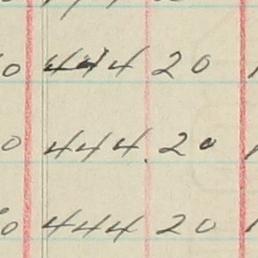 0 444 20
0 444.20
0 444 20